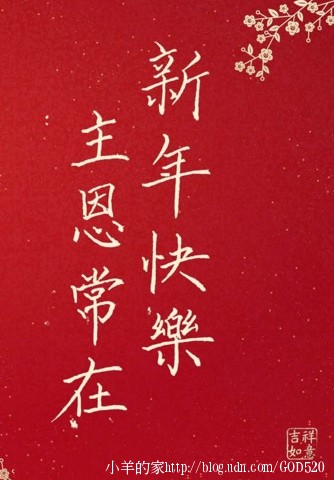 新年快樂
主恩常在
吉祥
如意
小羊的家http://blog.udn.com/GOD520